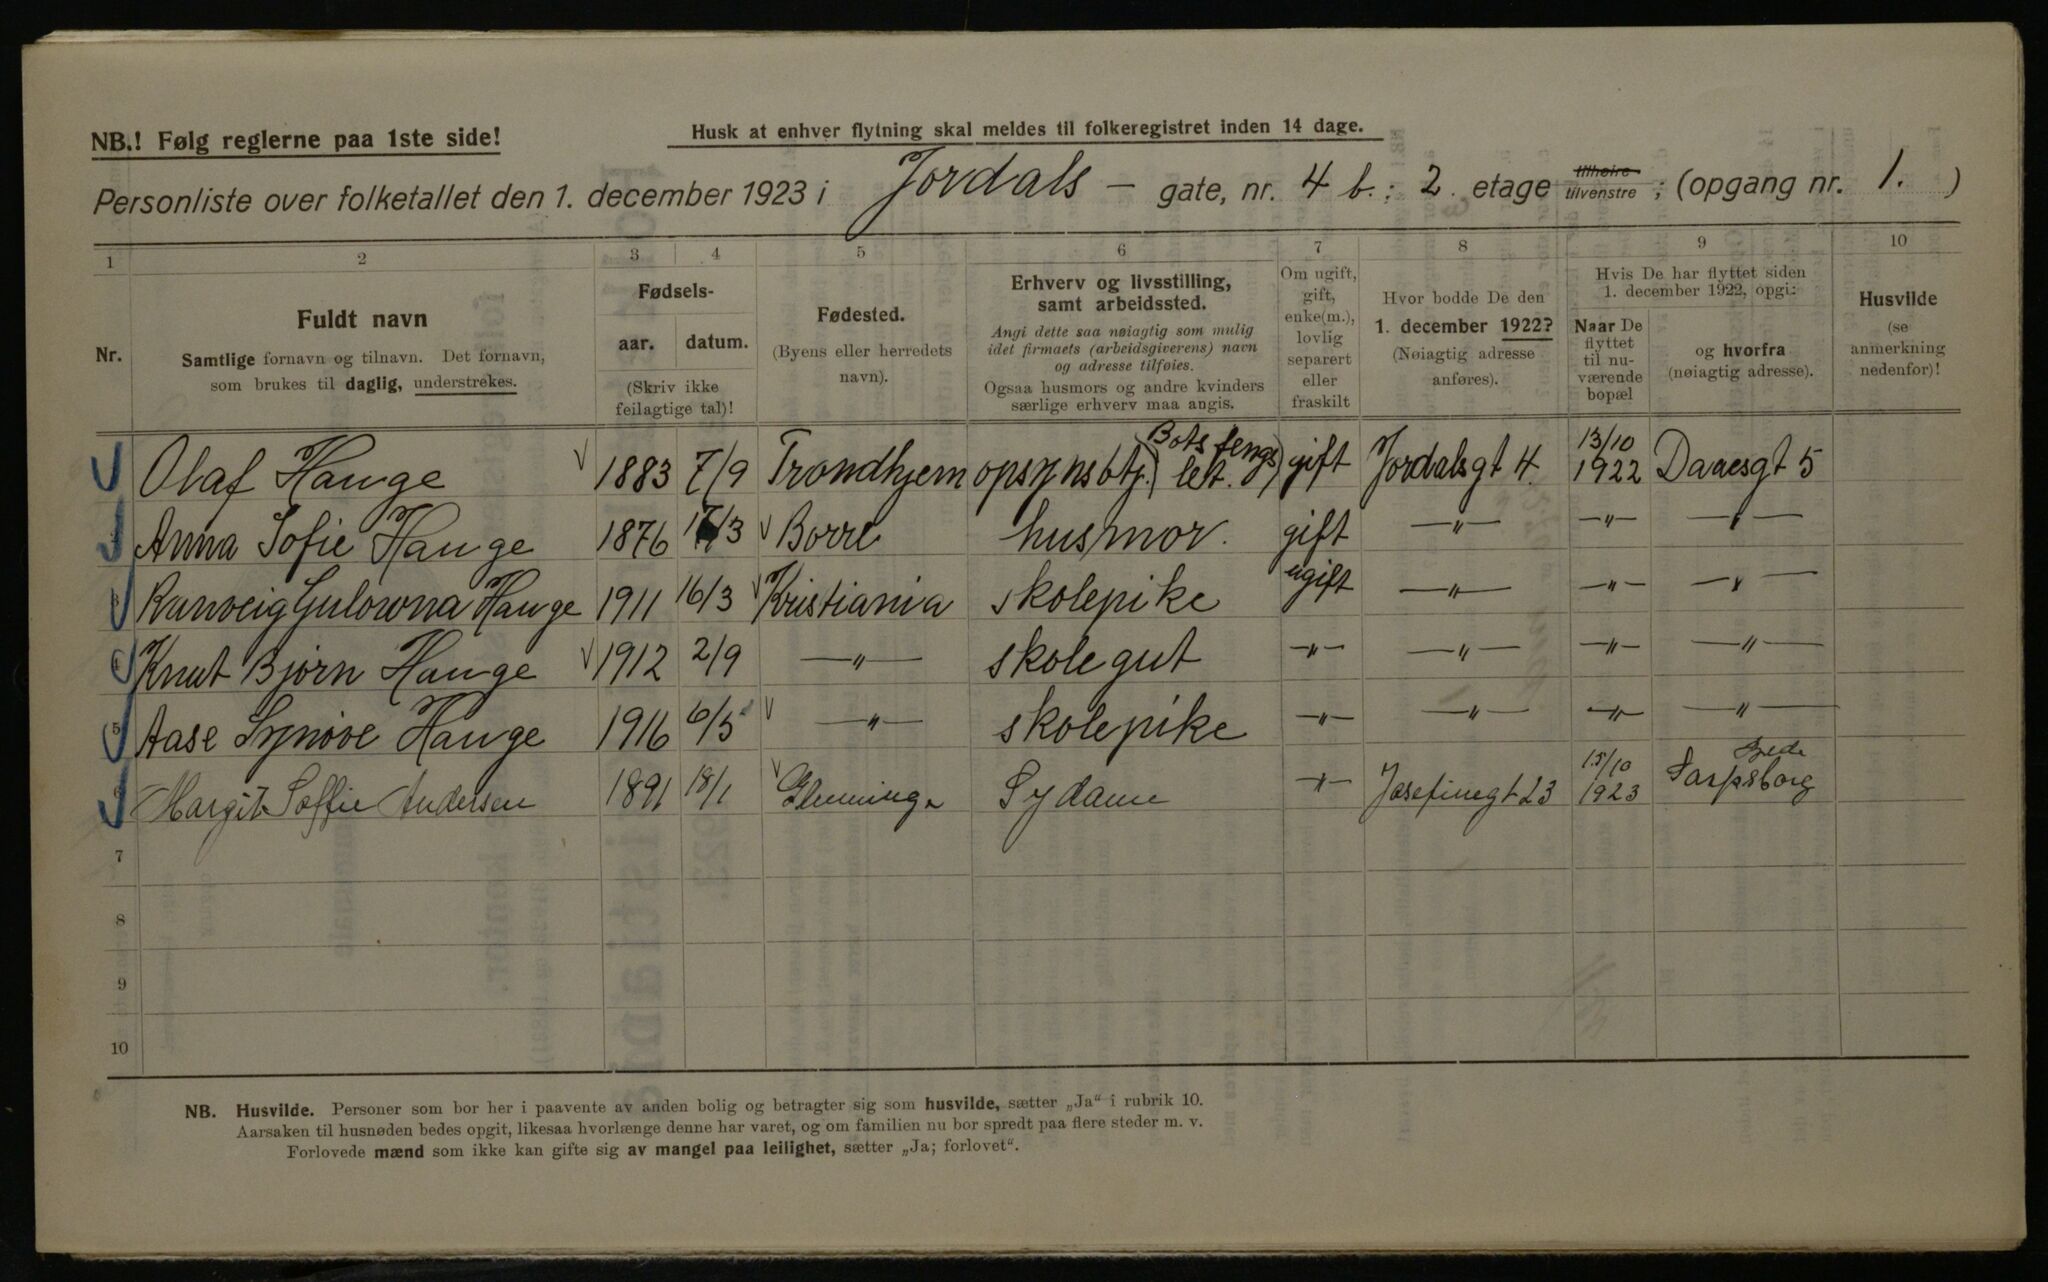 NB.! Følg reglerne paa 1ste side!
Husk at enhver flytning skal meldes til folkeregistret inden 14 dage.
Personliste over folketallet den 1. december 1923 i Jordals - gate, nr. 4 b.: 2. etage tilhøire tilvenstre ; (opgang nr. 1. )
1 2 3 4 5 6 7 8 9 10
Nr.
Fuldt navn
Samtlige fornavn og tilnavn. Det fornavn,
som brukes til daglig, understrekes.
Fødsels-
aar. datum.
(Skriv ikke
feilagtige tal)!
Fødested.
(Byens eller herredets
navn).
Erhverv og livsstilling,
samt arbeidssted.
Angi dette saa nøiagtig som mulig
idet firmaets (arbeidsgiverens) navn
og adresse tilføies.
Ogsaa husmors og andre kvinders
særlige erhverv maa angis.
Om ugift,
gift,
enke(m.),
lovlig
separert
eller
fraskilt
Hvor bodde De den
1. december 1922?
(Nøiagtig adresse
anføres).
Hvis De har flyttet siden
1. december 1922, opgi:
Naar De
flyttet
til nu-
værende
bopæl
og hvorfra
(nøiagtig adresse).
Husvilde
(se
anmerkning
nedenfor)!
Olaf Hauge 1883 7/9 Trondhjem opsynsbtj. (Botsfengslet.) gift Jordalsgt 4. 13/10 1922 Daaesgt 5
Anna Sofie Hauge 1876 17/3 Borre husmor. gift —"— —"— —"—
Ranveig Gulowna Hauge 1911 16/3 Kristiania skolepike ugift —"— —"— —"—
Knut Bjørn Hauge 1912 2/9 —"— skolegut —"— —"— —"— —"—
5 Aase Synøve Hauge 1916 6/5 —"— skolepike —"— —"— —"— —"—
6 Margit Soffie Andersen 1891 18/1 Glemminge Sydame —"— Josefinegt 23 15/10 1923 Sarpsborg
7
8
9
10
NB. Husvilde. Personer som bor her i paavente av anden bolig og betragter sig som husvilde, sætter „Ja" i rubrik 10.
Aarsaken til husnøden bedes opgit, likesaa hvorlænge denne har varet, og om familien nu bor spredt paa flere steder m. v.
Forlovede mænd som ikke kan gifte sig av mangel paa leilighet, sætter „Ja; forlovet".